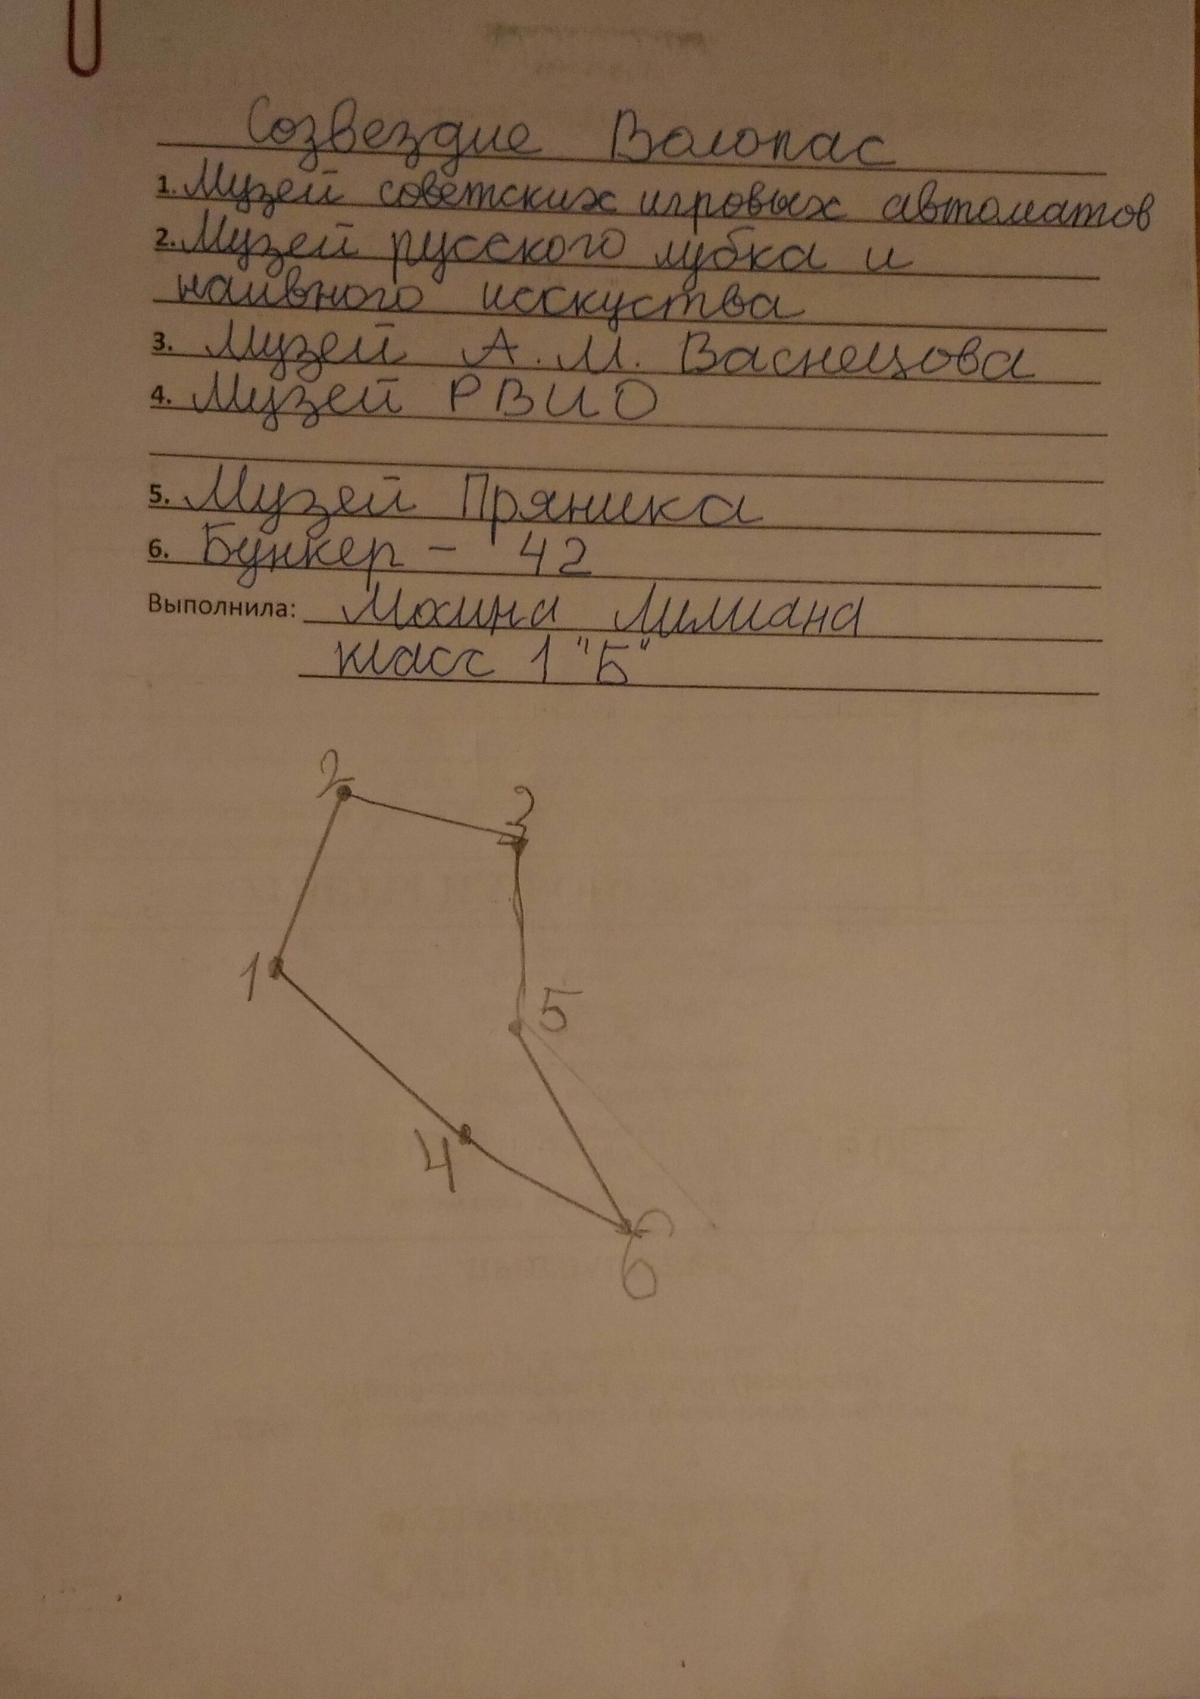 Созвездие Волопас
1. Музей советских игровых автоматов
2. Музей русского лубка и
наивного исскуства
3. Музей А.М. Васнецова
4. Музей РВИО
5. Музей Пряника
6. Бункер - 42
Выполнила: Мохина Лилиана
класс 1 "Б"
2
3
1
5
4
6